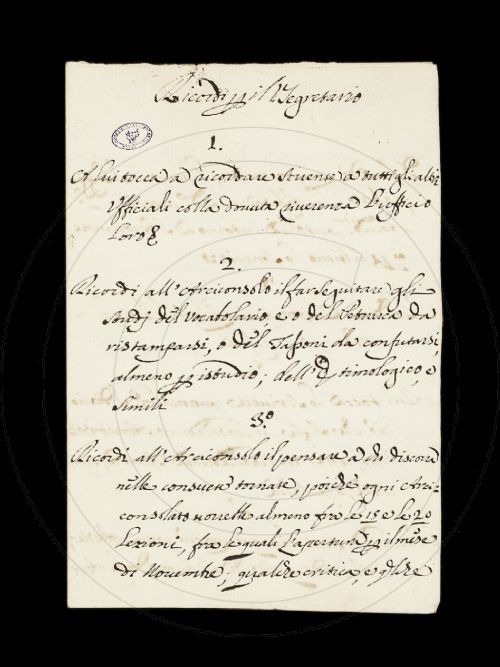 Ricordi p il Segretario
1.
A lui tocca a ricordare sovente a tutti gli altri
Ufficiali colla dovuta riverenza l'ufficio
loro
2.
Ricordi all'Arciconsolo il far seguitare gli
studj del Vocabolario, e o del Petrarca da
ristamparsi, o del Tassoni da confutarsi,
almeno p istudio; dell'Etimologico, e
simili
3.º
Ricordi all'Arciconsolo il pensare a chi discorra
nelle consuete tornate, poichè ogni Arci=
consolato novelle almeno fra le 15 e le 20
Lezioni, fra le quali l'apertura p il mese
di Novembre; qualche critica, e qlche